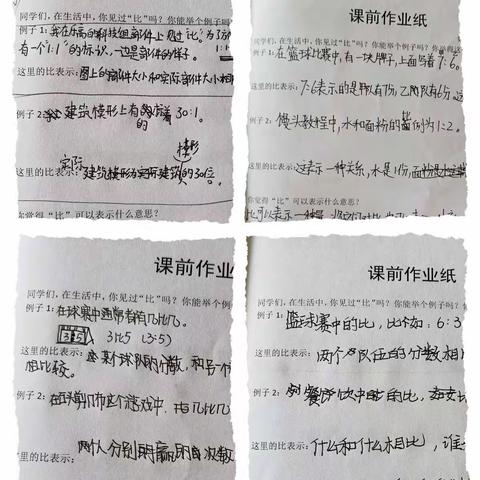 同学们，在生活中，你见过“比”吗？你能举个例子吗
例子1：我在乐高的科技组部件上见过“比”。为了
有个“1:1”的标识，一边是部件的样子。
这里的比表示：图上的部件大小和实际部件大小相
例子2：建筑模形上有的写着30:1。
模形
这里的比表示：实际建筑模形为实际建筑的30倍。
你觉得“比”可以表示什么意思？
课前作业纸
同学们，在生活中，你见过“比”吗？你能举个例子吗？
例子1：在篮球比赛中，有一块牌子，上面写着7:6。
这里的比表示：7:6表示的是甲队有7分，乙队有6分。
例子2：馒头教程中，水和面粉的比例为1:2。
这里的比表示：这表示一种关系，水是1份，面粉是
你觉得“比”可以表示什么意思？
课前作业
同学们，在生活中，你见过“比”吗？你能举个例
例子1：在球赛中通常有几比几。
3:5 3比5 (3:5)
这里的比表示：某个球队的分数，和另一个
相比较。
例子2：在石头剪刀布这个游戏中，
这里的比表示：两个人分别赢的次数
课前作业纸
同学们，在生活中，你见过“比”吗？你能举个例子吗？
例子1：篮球赛中的比，比如：6:3
这里的比表示：两个队伍的分数相
例子2：餐饮中的比，
这里的比表示：什么和什么相比，谁